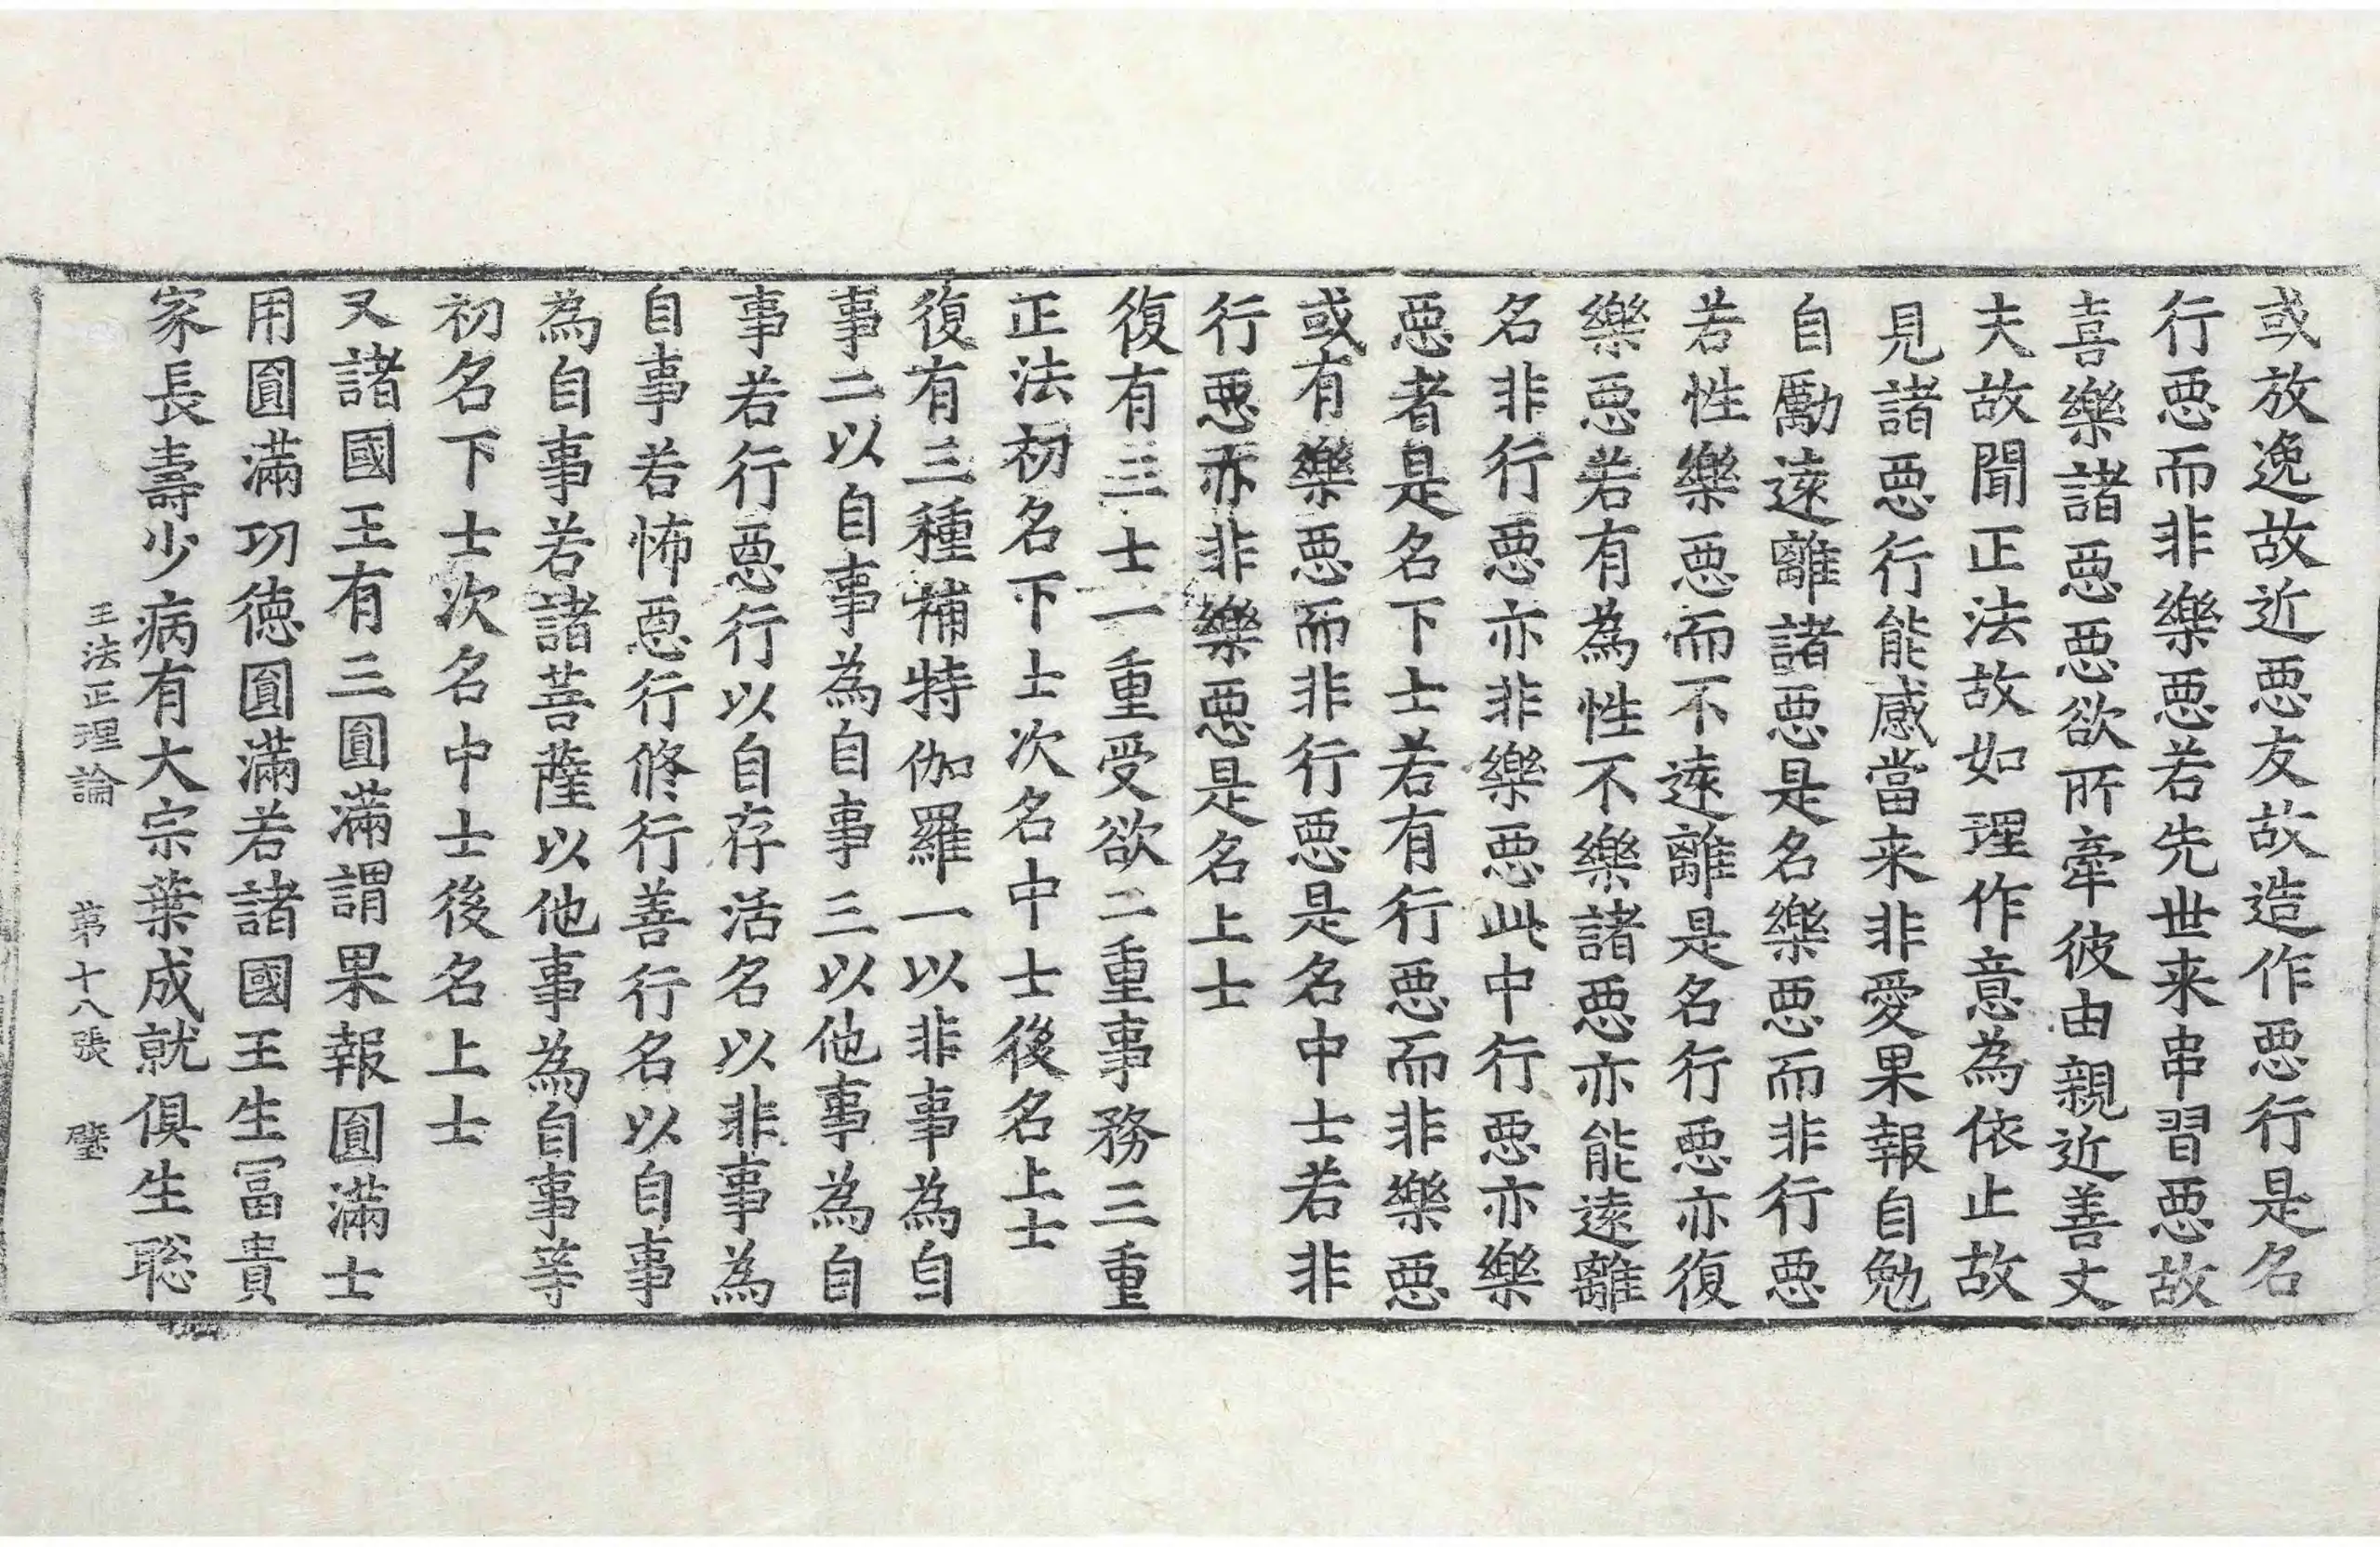 或放逸故近悪友故造作悪行是名
行悪而非樂悪若先世来串習悪故
喜樂諸悪悪欲所牽彼由親近善丈
夫故聞正法故如理作意為依止故
見諸悪行能感當来非愛果報自勉
自勵遠離諸悪是名樂悪而非行悪
若性樂悪而不遠離是名行悪亦復
樂悪若有為性不樂諸悪亦能遠離
名非行悪亦非樂悪此中行悪亦樂
悪者是名下士若有行悪而非樂悪
或有樂悪而非行悪是名中士若非
行悪亦非樂悪是名上士
復有三士一重受欲二重事務三重
正法初名下士次名中士後名上士
復有三種補特伽羅一以非事為自
事二以自事為自事三以他事為自
事若行悪行以自存活名以非事為
自事若怖悪行修行善行名以自事
為自事若諸菩薩以他事為自事等
初名下士次名中士後名上士
又諸國王有三圓滿謂果報圓滿士
用圓滿功徳圓滿若諸國王生冨貴
家長壽少病有大宗葉成就俱生聡
王法正理論 第十八張 璧